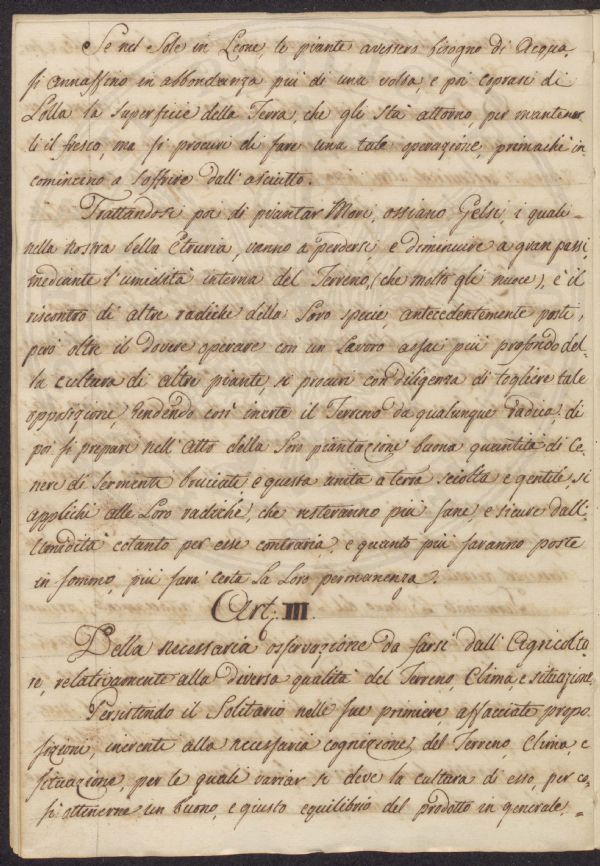 Se nel Sole in Leone, le piante avessero bisogno di Acqua,
si annaffino in abbondanza più di una volta, e poi coprasi di
Lolla la superficie della Terra, che gli stà attorno, per mantener
li il fresco, ma si procuri di fare una tale operazione, primachè in
comincino a soffrire dall'asciutto.
Trattandosi poi di piantar Mori, ossiano Gelsi, i quali
nella nostra bella Etruria, vanno a perdersi, e diminuire a gran passi,
mediante l'umidità interna del Terreno, (che molto gli nuoce), e il
riscontro di altre radiche della Loro specie, antecedentemente poste,
però oltre il dovere operare con un Lavoro assai più profondo del=
la cultura di altre piante, si procuri con diligenza di togliere tale
opposizione, rendendo così inerte il Terreno da qualunque radica, di
poi si prepari nell'Atto della Loro piantazione buona quantità di Ce
nere di Sermenti bruciati e questa unita a terra sciolta e gentile, si
applichi alle Loro radiche, che resteranno più sane, e sicure dall'
Umidità cotanto per esse contraria, e quanto più saranno poste
in sommo, più sarà certa La Loro permanenza.
Art: III.
Della necessaria osservazione da farsi dall'Agricolto
re, relativamente alla diversa qualità del Terreno, Clima, e situazione.
Persistendo il Solitario nelle sue primiere, affacciate propo
sizioni, inerente alla necessaria cognizione, del Terreno, Clima, e
situazione, per le quali variar si deve la cultura di esso, per co=
sì ottenerne un buono, e giusto equilibrio del prodotto in generale, =